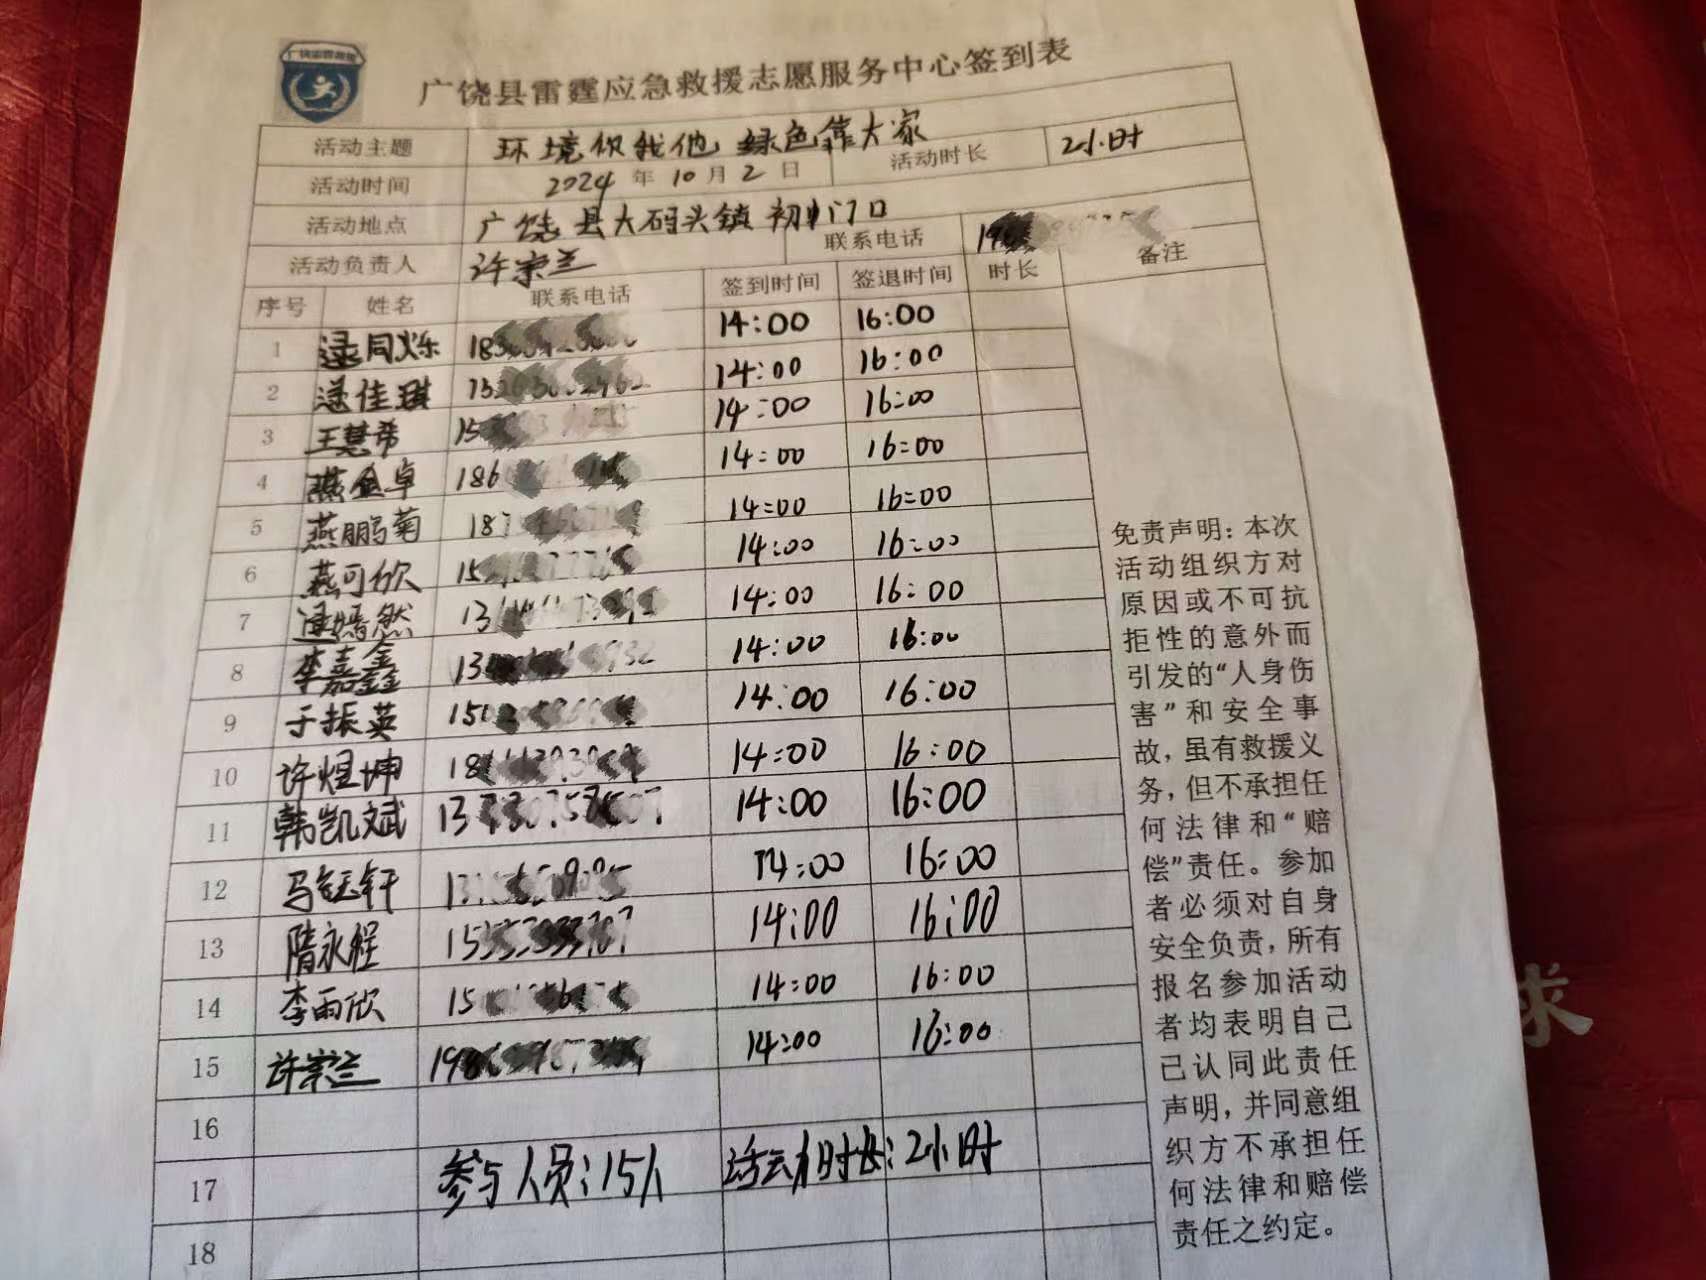 广饶县雷霆应急救援志愿服务中心签到表
活动主题 环境你我他 绿色靠大家
活动时间 2024年10月2日 活动时长 2小时
活动地点 广饶县大码头镇初中门口
活动负责人 许宗兰 联系电话
序号 姓名 联系电话 签到时间 签退时间 时长 备注
1 逯同烁 14:00 16:00
2 逯佳琪 14:00 16:00
3 王慧希 14:00 16:00
4 燕金卓 14:00 16:00
5 燕鹏菊 14:00 16:00
6 燕可欣 14:00 16:00
7 逯嫣然 14:00 16:00
8 李嘉鑫 14:00 16:00
9 于振英 14:00 16:00
10 许煜坤 14:00 16:00
11 韩凯斌 14:00 16:00
12 马钰轩 14:00 16:00
13 隋永程 14:00 16:00
14 李雨欣 14:00 16:00
15 许宗兰 14:00 16:00
16
17 参与人员:15人 活动时长:2小时
18
免责声明:本次
活动组织方对
原因或不可抗
拒性的意外而
引发的“人身伤
害”和安全事
故,虽有救援义
务,但不承担任
何法律和“赔
偿”责任。参加
者必须对自身
安全负责,所有
报名参加活动
者均表明自己
己认同此责任
声明,并同意组
织方不承担任
何法律和赔偿
责任之约定。
求